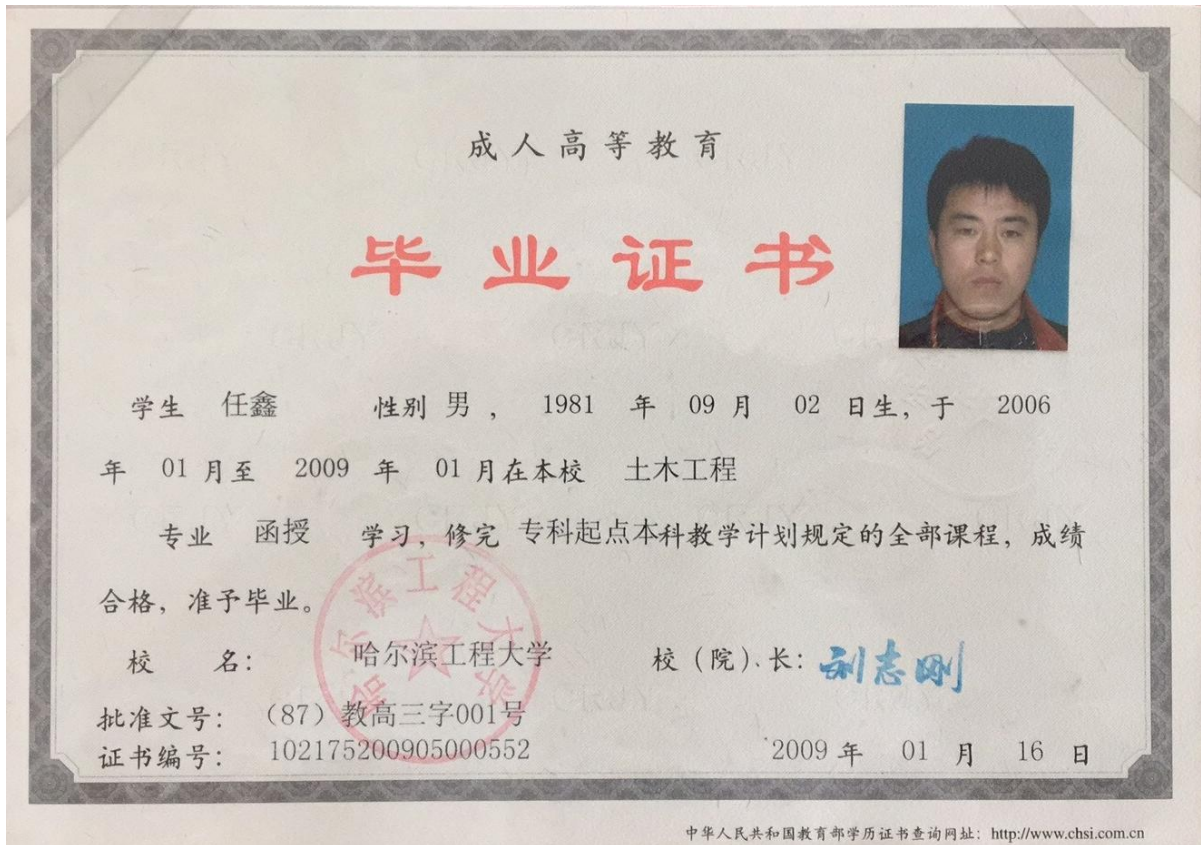 成人高等教育
毕业证书
学生 任鑫 性别 男， 1981 年 09 月 02 日生，于 2006
年 01 月至 2009 年 01 月在本校 土木工程
专业 函授 学习，修完 专科起点本科教学计划规定的全部课程，成绩
合格，准予毕业。
校 名： 哈尔滨工程大学 校（院）、长： 刘志刚
哈尔滨工程大学
批准文号： （87）教高三字001号
证书编号： 102175200905000552 2009 年 01 月 16 日
中华人民共和国教育部学历证书查询网址： http://www.chsi.com.cn